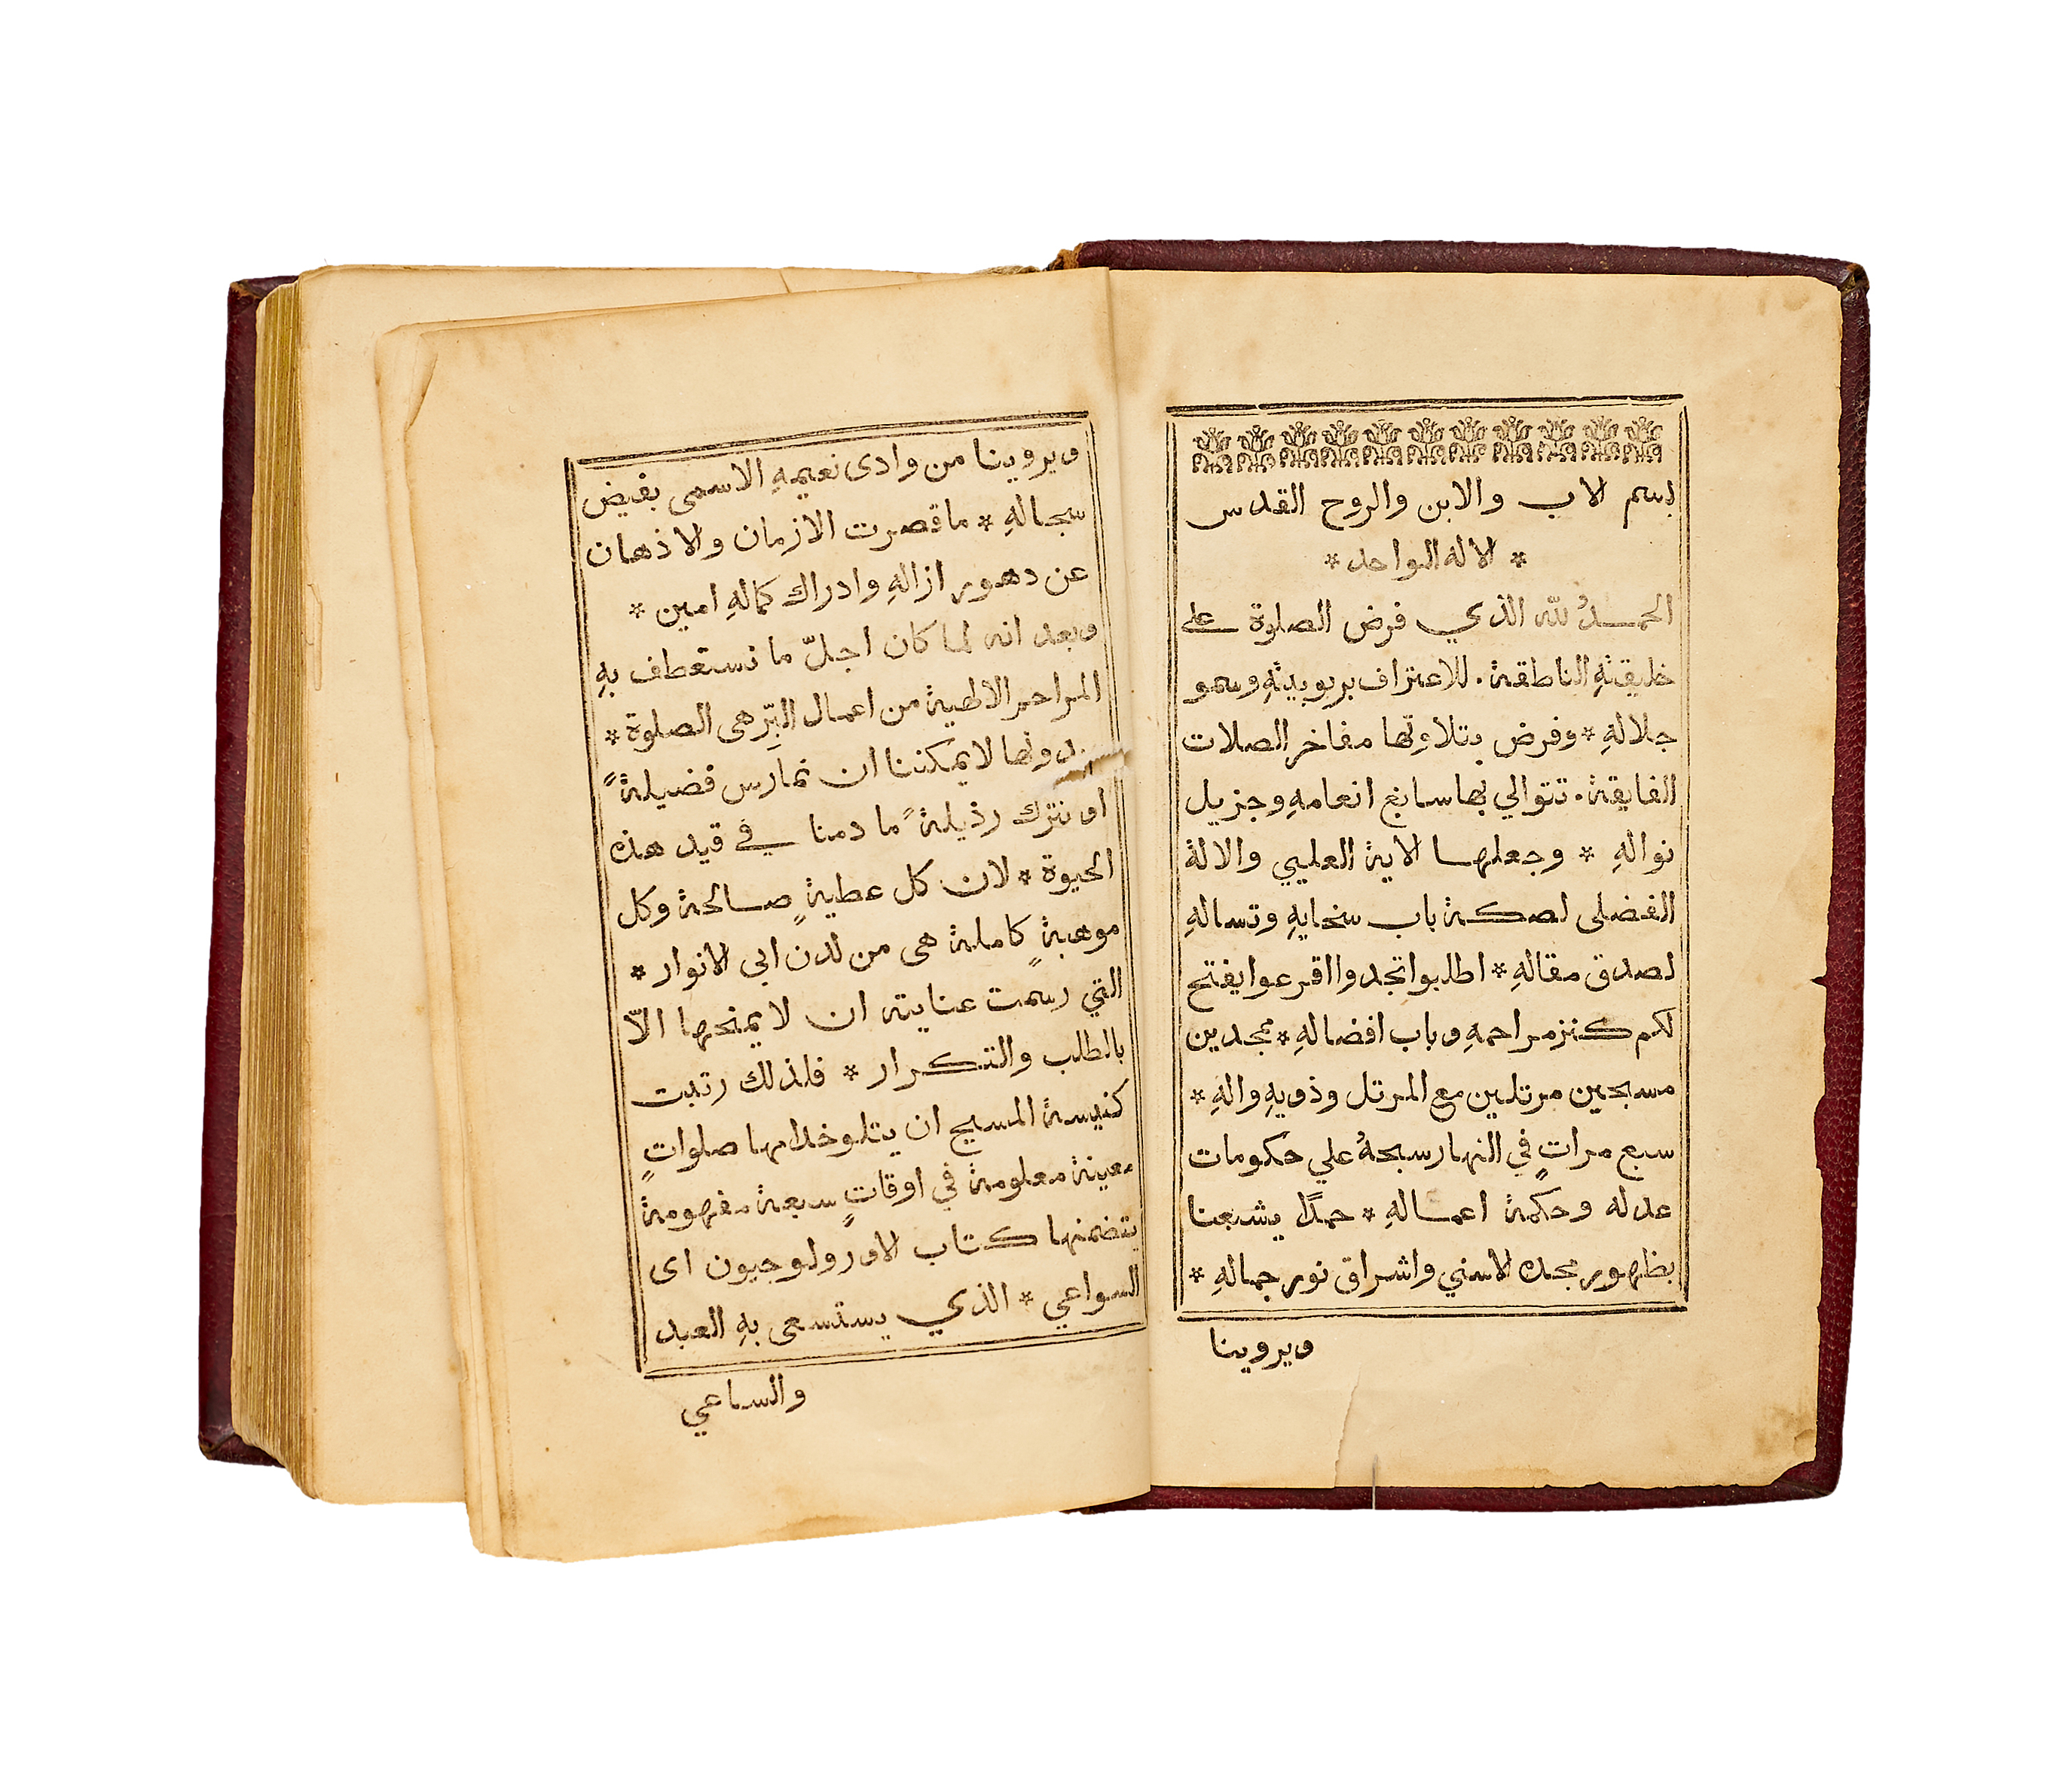 بسم الاب والابن والروح القدس
* الاله الواحد *
الحمدُ لله الذي فرض الصلوة على
خليقتهِ الناطقة. للاعتراف بربوبيتهِ وسمو
جلالهِ * وفرض بتلاوتها مفاخر الصلات
الفايقة. تتوالي بها سابغ انعامهِ وجزيل
نوالهِ * وجعلها الاية العليي والالة
الفضلى لصكة باب سخايهِ وتسالهِ
لصدق مقالهِ * اطلبوا تجدوا اقرعوا يفتح
لكم كنز مراحمهِ وباب افضالهِ * ممجدين
مسبحين مرتلين مع المرتل وذويهِ والهِ *
سبع مراتٍ في النهار سبحهُ علي حكومات
عدله وحكمة اعمالهِ * حمدًا يشبعنا
بظهور مجده الاسني واشراق نور جمالهِ *
ويروينا
ويروينا من وادى نعيمهِ الاسمى بفيض
سجالهِ * ما قصرت الازمان والاذهان
عن دهور ازالهِ وادراك كمالهِ امين *
وبعد انه لما كان اجلّ ما نستعطف بهِ
المراحم الالهية من اعمال البِرّ هى الصلوة *
بدونها لا يمكننا ان نمارس فضيلةً
او نترك رذيلةً ما دمنا في قيد هذه
الحيوة * لان كل عطيةٍ صالحة وكل
موهبةٍ كاملة هى من لدن ابي الانوار *
التي رسمت عنايته ان لا يمنحها الّا
بالطلب والتكرار * فلذلك رتبت
كنيسة المسيح ان يتلو خدامها صلواتٍ
معينة معلومة في اوقاتٍ سبعة مفهومة
يتضمنها كتاب الاورولوجيون اى
السواعي * الذي يستسعى بهِ العبد
والساعي